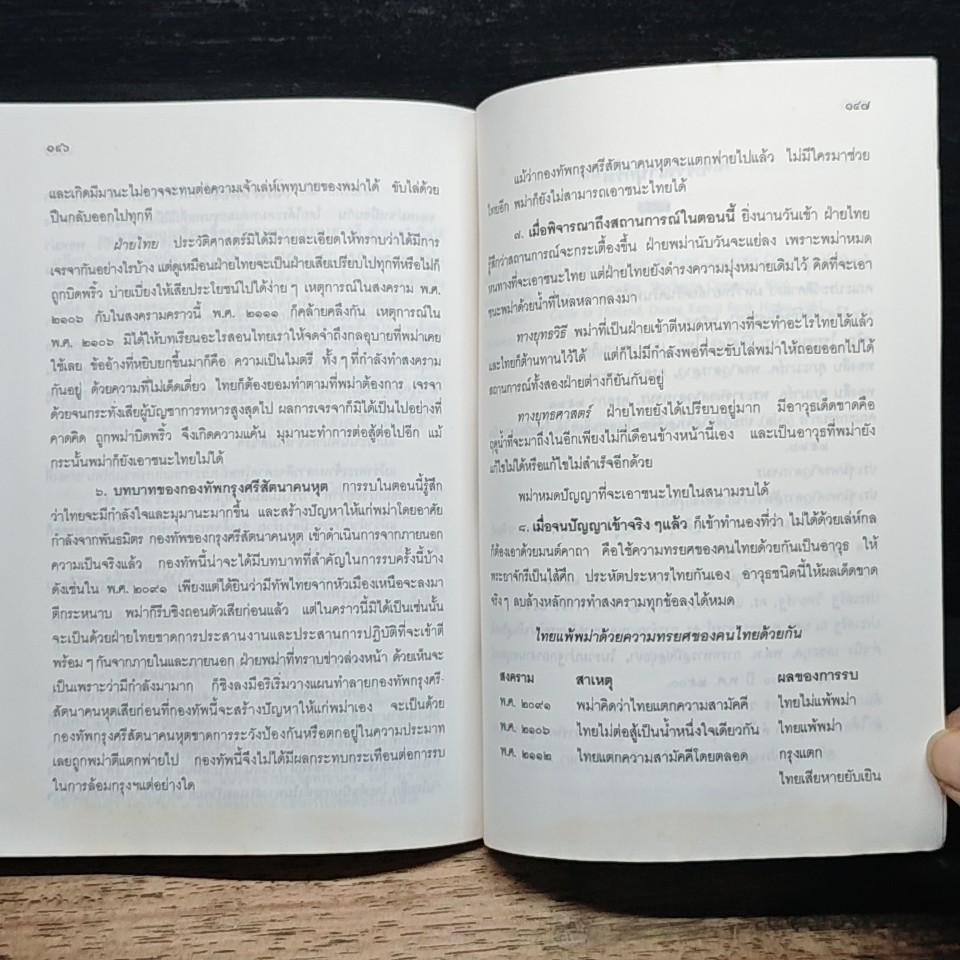 ๑๔๖
และเกิดมีมานะไม่อาจจะทนต่อความเจ้าเล่ห์เพทุบายของพม่าได้ ขับไล่ด้วย
ปืนกลับออกไปทุกที
ฝ่ายไทย ประวัติศาสตร์มิได้มีรายละเอียดให้ทราบว่าได้มีการ
เจรจากันอย่างไรบ้าง แต่ดูเหมือนฝ่ายไทยจะเป็นฝ่ายเสียเปรียบไปทุกทีหรือไม่ก็
ถูกบิดพริ้ว บ่ายเบี่ยงให้เสียประโยชน์ไปได้ง่าย ๆ เหตุการณ์ในสงคราม พ.ศ.
๒๑๐๖ กับในสงครามคราวนี้ พ.ศ. ๒๑๑๑ ก็คล้ายคลึงกัน เหตุการณ์ใน
พ.ศ. ๒๑๐๖ มิได้ให้บทเรียนอะไรสอนไทยเราให้จดจำถึงกลอุบายที่พม่าเคย
ใช้เลย ข้ออ้างที่หยิบยกขึ้นมาก็คือ ความเป็นไมตรี ทั้ง ๆ ที่กำลังทำสงคราม
กันอยู่ ด้วยความที่ไม่เด็ดเดี่ยว ไทยก็ต้องยอมทำตามที่พม่าต้องการ เจรจา
ด้วยจนกระทั่งเสียผู้บัญชาการทหารสูงสุดไป ผลการเจรจาก็มิได้เป็นไปอย่างที่
คาดคิด ถูกพม่าบิดพริ้ว จึงเกิดความแค้น มุมานะทำการต่อสู้ต่อไปอีก แม้
กระนั้นพม่าก็ยังเอาชนะไทยไม่ได้
๖. บทบาทของกองทัพกรุงศรีสัตนาคนหุต การรบในตอนนี้รู้สึก
ว่าไทยจะมีกำลังใจและมุมานะมากขึ้น และสร้างปัญหาให้แก่พม่าโดยอาศัย
กำลังจากพันธมิตร กองทัพของกรุงศรีสัตนาคนหุต เข้าดำเนินการจากภายนอก
ความเป็นจริงแล้ว กองทัพนี้น่าจะได้มีบทบาทที่สำคัญในการรบครั้งนี้บ้าง
ดังเช่นใน พ.ศ. ๒๐๙๑ เพียงแต่ได้ยินว่ามีทัพไทยจากหัวเมืองเหนือจะลงมา
ตีกระหนาบ พม่าก็รีบชิงถอนตัวเสียก่อนแล้ว แต่ในคราวนี้มิได้เป็นเช่นนั้น
จะเป็นด้วยฝ่ายไทยขาดการประสานงานและประสานการปฏิบัติที่จะเข้าตี
พร้อม ๆ กันจากภายในและภายนอก ฝ่ายพม่าที่ทราบข่าวล่วงหน้า ด้วยเห็นจะ
เป็นเพราะว่ามีกำลังมามาก ก็ชิงลงมือริเริ่มวางแผนทำลายกองทัพกรุงศรี-
สัตนาคนหุตเสียก่อนที่กองทัพนี้จะสร้างปัญหาให้แก่พม่าเอง จะเป็นด้วย
กองทัพกรุงศรีสัตนาคนหุตขาดการระวังป้องกันหรือตกอยู่ในความประมาท
เลยถูกพม่าตีแตกพ่ายไป กองทัพนี้จึงไม่ได้มีผลกระทบกระเทือนต่อการรบ
ในการล้อมกรุงฯแต่อย่างใด
๑๔๗
แม้ว่ากองทัพกรุงศรีสัตนาคนหุตจะแตกพ่ายไปแล้ว ไม่มีใครมาช่วย
ไทยอีก พม่าก็ยังไม่สามารถเอาชนะไทยได้
๗. เมื่อพิจารณาถึงสถานการณ์ในตอนนี้ ยิ่งนานวันเข้า ฝ่ายไทย
รู้สึกว่าสถานการณ์จะกระเตื้องขึ้น ฝ่ายพม่านับวันจะแย่ลง เพราะพม่าหมด
หนทางที่จะเอาชนะไทย แต่ฝ่ายไทยยังดำรงความมุ่งหมายเดิมไว้ คิดที่จะเอา
ชนะพม่าด้วยน้ำที่ไหลหลากลงมา
ทางยุทธวิธี พม่าที่เป็นฝ่ายเข้าตีหมดหนทางที่จะทำอะไรไทยได้แล้ว
และไทยก็ต้านทานไว้ได้ แต่ก็ไม่มีกำลังพอที่จะขับไล่พม่าให้ถอยออกไปได้
สถานการณ์ทั้งสองฝ่ายต่างก็ยันกันอยู่
ทางยุทธศาสตร์ ฝ่ายไทยยังได้เปรียบอยู่มาก มีอาวุธเด็ดขาดคือ
ฤดูน้ำที่จะมาถึงในอีกเพียงไม่กี่เดือนข้างหน้านี้เอง และเป็นอาวุธที่พม่ายัง
แก้ไขไม่ได้หรือแก้ไขไม่สำเร็จอีกด้วย
พม่าหมดปัญญาที่จะเอาชนะไทยในสนามรบได้
๘. เมื่อจนปัญญาเข้าจริง ๆแล้ว ก็เข้าทำนองที่ว่า ไม่ได้ด้วยเล่ห์กล
ก็ต้องเอาด้วยมนต์คาถา คือใช้ความทรยศของคนไทยด้วยกันเป็นอาวุธ ให้
พระยาจักรีเป็นไส้ศึก ประหัตประหารไทยกันเอง อาวุธชนิดนี้ให้ผลเด็ดขาด
จริงๆ ลบล้างหลักการทำสงครามทุกข้อลงได้หมด
ไทยแพ้พม่าด้วยความทรยศของคนไทยด้วยกัน
สงคราม สาเหตุ ผลของการรบ
พ.ศ. ๒๐๙๑ พม่าคิดว่าไทยแตกความสามัคคี ไทยไม่แพ้พม่า
พ.ศ. ๒๑๐๖ ไทยไม่ต่อสู้เป็นน้ำหนึ่งใจเดียวกัน ไทยแพ้พม่า
พ.ศ. ๒๑๑๒ ไทยแตกความสามัคคีโดยตลอด กรุงแตก
ไทยเสียหายยับเยิน